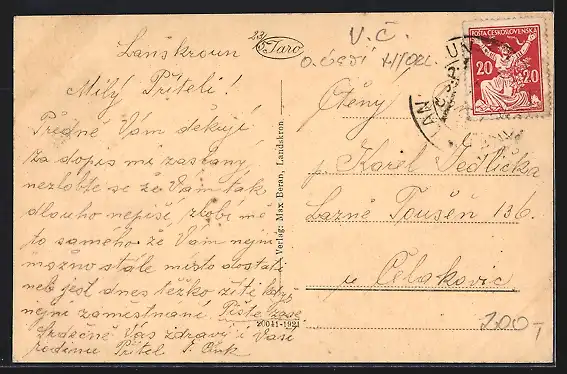 Lanškroun
Milý Příteli!
Předně Vám děkuji
za dopis mi zaslaný,
nezlobte se že Vám tak
dlouho nepíši, zlobí mě
to samého že Vám není
možno stálé místo dostati
neb jest dnes těžko žíti když
není zaměstnaní. Pište zase
Srdečně Vás zdraví i Vaši
rodinu Přítel
23/5 Jaro
Verlag: Max Beran, Landskron.
20041-1921
V. Č.
POŠTA ČESKOSLOVENSKÁ
20 20
LAN
Ctěný
p Karel Sedlička
Lazně Toušeň 136.
p Čelakovic
200,-